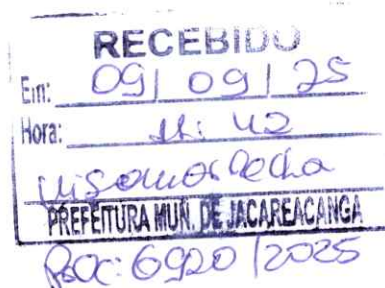 RECEBIDO
Em: 09/09/25
Hora: 11:42
PREFEITURA MUN. DE JACAREACANGA
PROC: 6920/2025